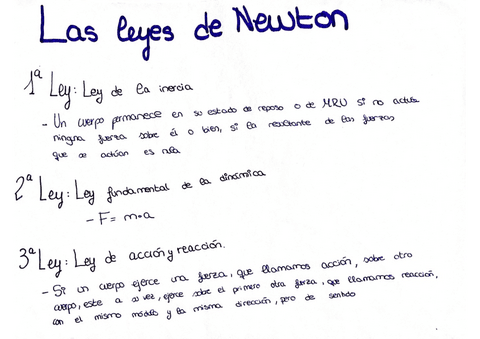 Las leyes de Newton
1ª Ley: Ley de la inercia
- Un cuerpo permanece en su estado de reposo o de MRU si no actúa
ninguna fuerza sobre él o bien, si la resultante de las fuerzas
que actúan es nula
2ª Ley: Ley fundamental de la dinámica
- F= m·a
3ª Ley: Ley de acción y reacción.
- Si un cuerpo ejerce una fuerza, que llamamos acción, sobre otro
cuerpo, este a su vez, ejerce sobre el primero otra fuerza, que llamamos reacción,
con el mismo módulo y la misma dirección, pero de sentido